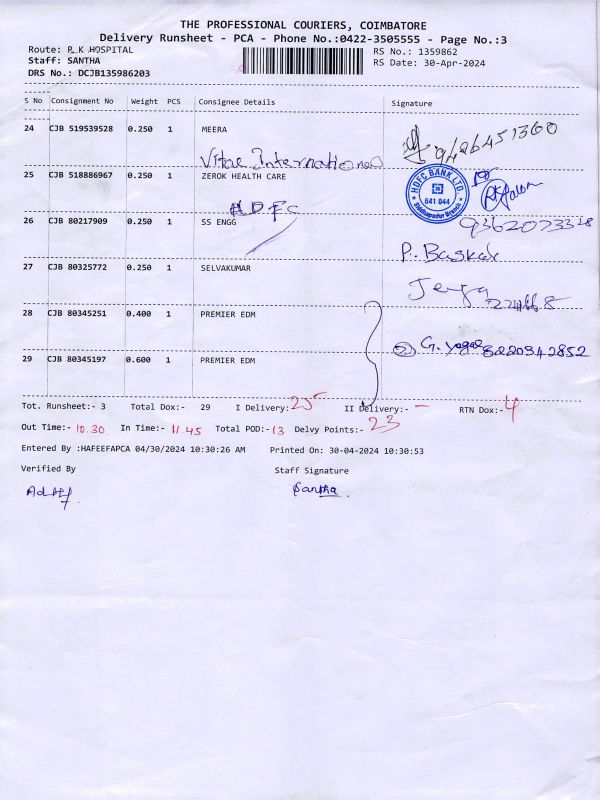 THE PROFESSIONAL COURIERS, COIMBATORE
Delivery Runsheet - PCA - Phone No.:0422-3505555 - Page No.:3
Route: R K HOSPITAL
RS No.: 1359862
Staff: SANTHA
RS Date: 30-Apr-2024
DRS No.: DCJB135986203
S No Consignment No Weight PCS Consignee Details Signature
24 CJB 519539528 0.250 1 MEERA
9426451360
Vitae International
25 CJB 518886967 0.250 1 ZEROK HEALTH CARE
HDFC BANK LTD.
641 044
Siddhapudur Branch
HDFC
26 CJB 80217909 0.250 1 SS ENGG
9362073328
P. Baskar
27 CJB 80325772 0.250 1 SELVAKUMAR
28 CJB 80345251 0.400 1 PREMIER EDM
G. 8220942852
29 CJB 80345197 0.600 1 PREMIER EDM
Tot. Runsheet:- 3 Total Dox:- 29 I Delivery: 25 II Delivery:- - RTN Dox:- 4
Out Time:- 10.30 In Time:- 11.45 Total POD:- 13 Delvy Points:- 23
Entered By :HAFEEFAPCA 04/30/2024 10:30:26 AM Printed On: 30-04-2024 10:30:53
Verified By Staff Signature
Santha